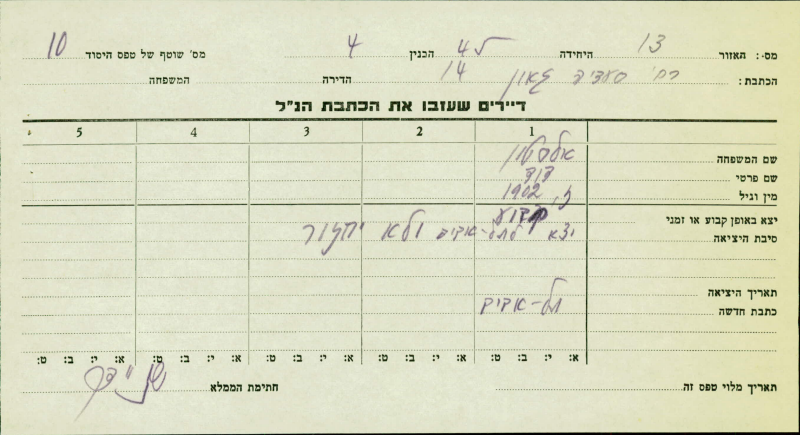 מס׳: האזור 13 היחידה 4ל הבנין 4 מס׳ שוטף של טפס היסוד 10
הכתבת: רח׳ סעדיה גאון 14 הדירה המשפחה
דיירים שעזבו את הכתבת הנ״ל
1 2 3 4 5
שם המשפחה
שם פרטי דוד
מין וגיל ז, 1902
יצא באופן קבוע או זמני קבוע
סיבת היציאה יצא לתל-אביב ולא יחזור
תאריך היציאה
כתבת חדשה תל-אביב
א: י: ב: ט: א: י: ב: ט: א: י: ב: ט: א: י: ב: ט: א: י: ב: ט:
תאריך מלוי טפס זה חתימת הממלא